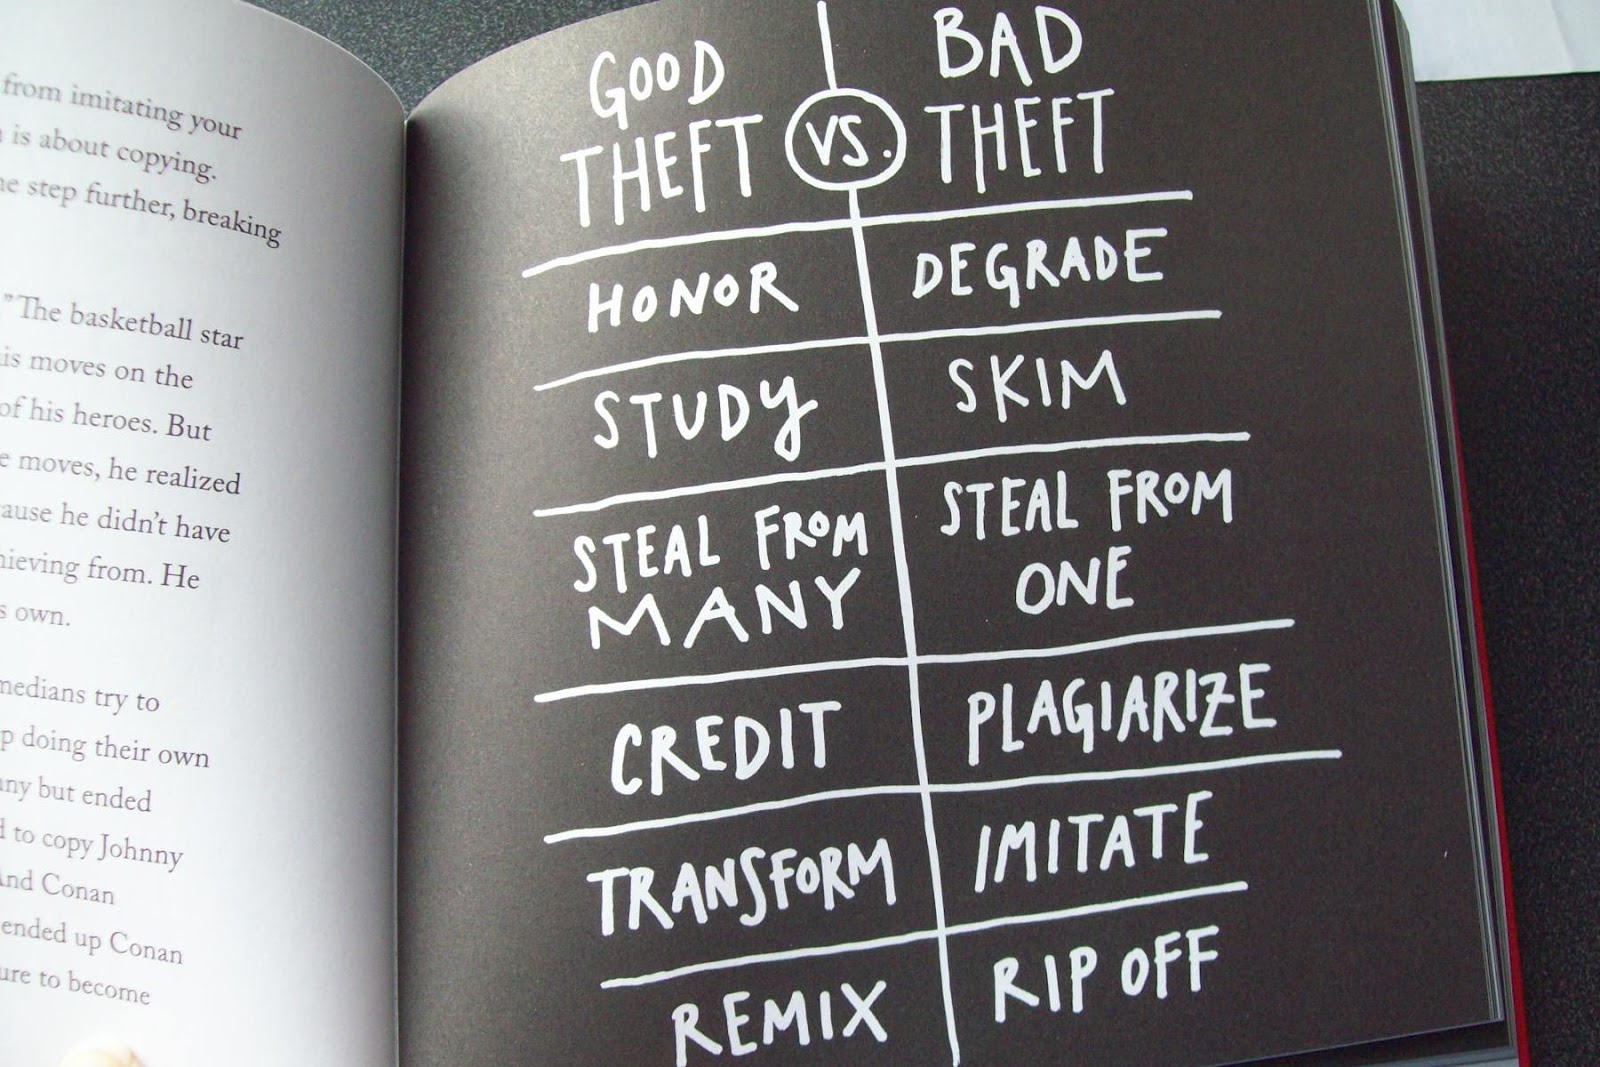 from imitating your
is about copying.
step further, breaking
"The basketball star
moves on the
of his heroes. But
moves, he realized
he didn't have
from. He
own.
try to
doing their own
but ended
to copy Johnny
And Conan
ended up Conan
to become
GOOD THEFT
VS.
BAD THEFT
HONOR
DEGRADE
STUDY
SKIM
STEAL FROM MANY
STEAL FROM ONE
CREDIT
PLAGIARIZE
TRANSFORM
IMITATE
REMIX
RIP OFF